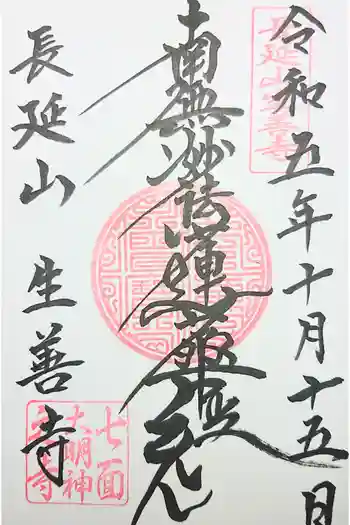 長延山生善寺
令和五年十月十五日
南無妙法蓮華経
長延山 生善寺
七面
大明神
生善寺